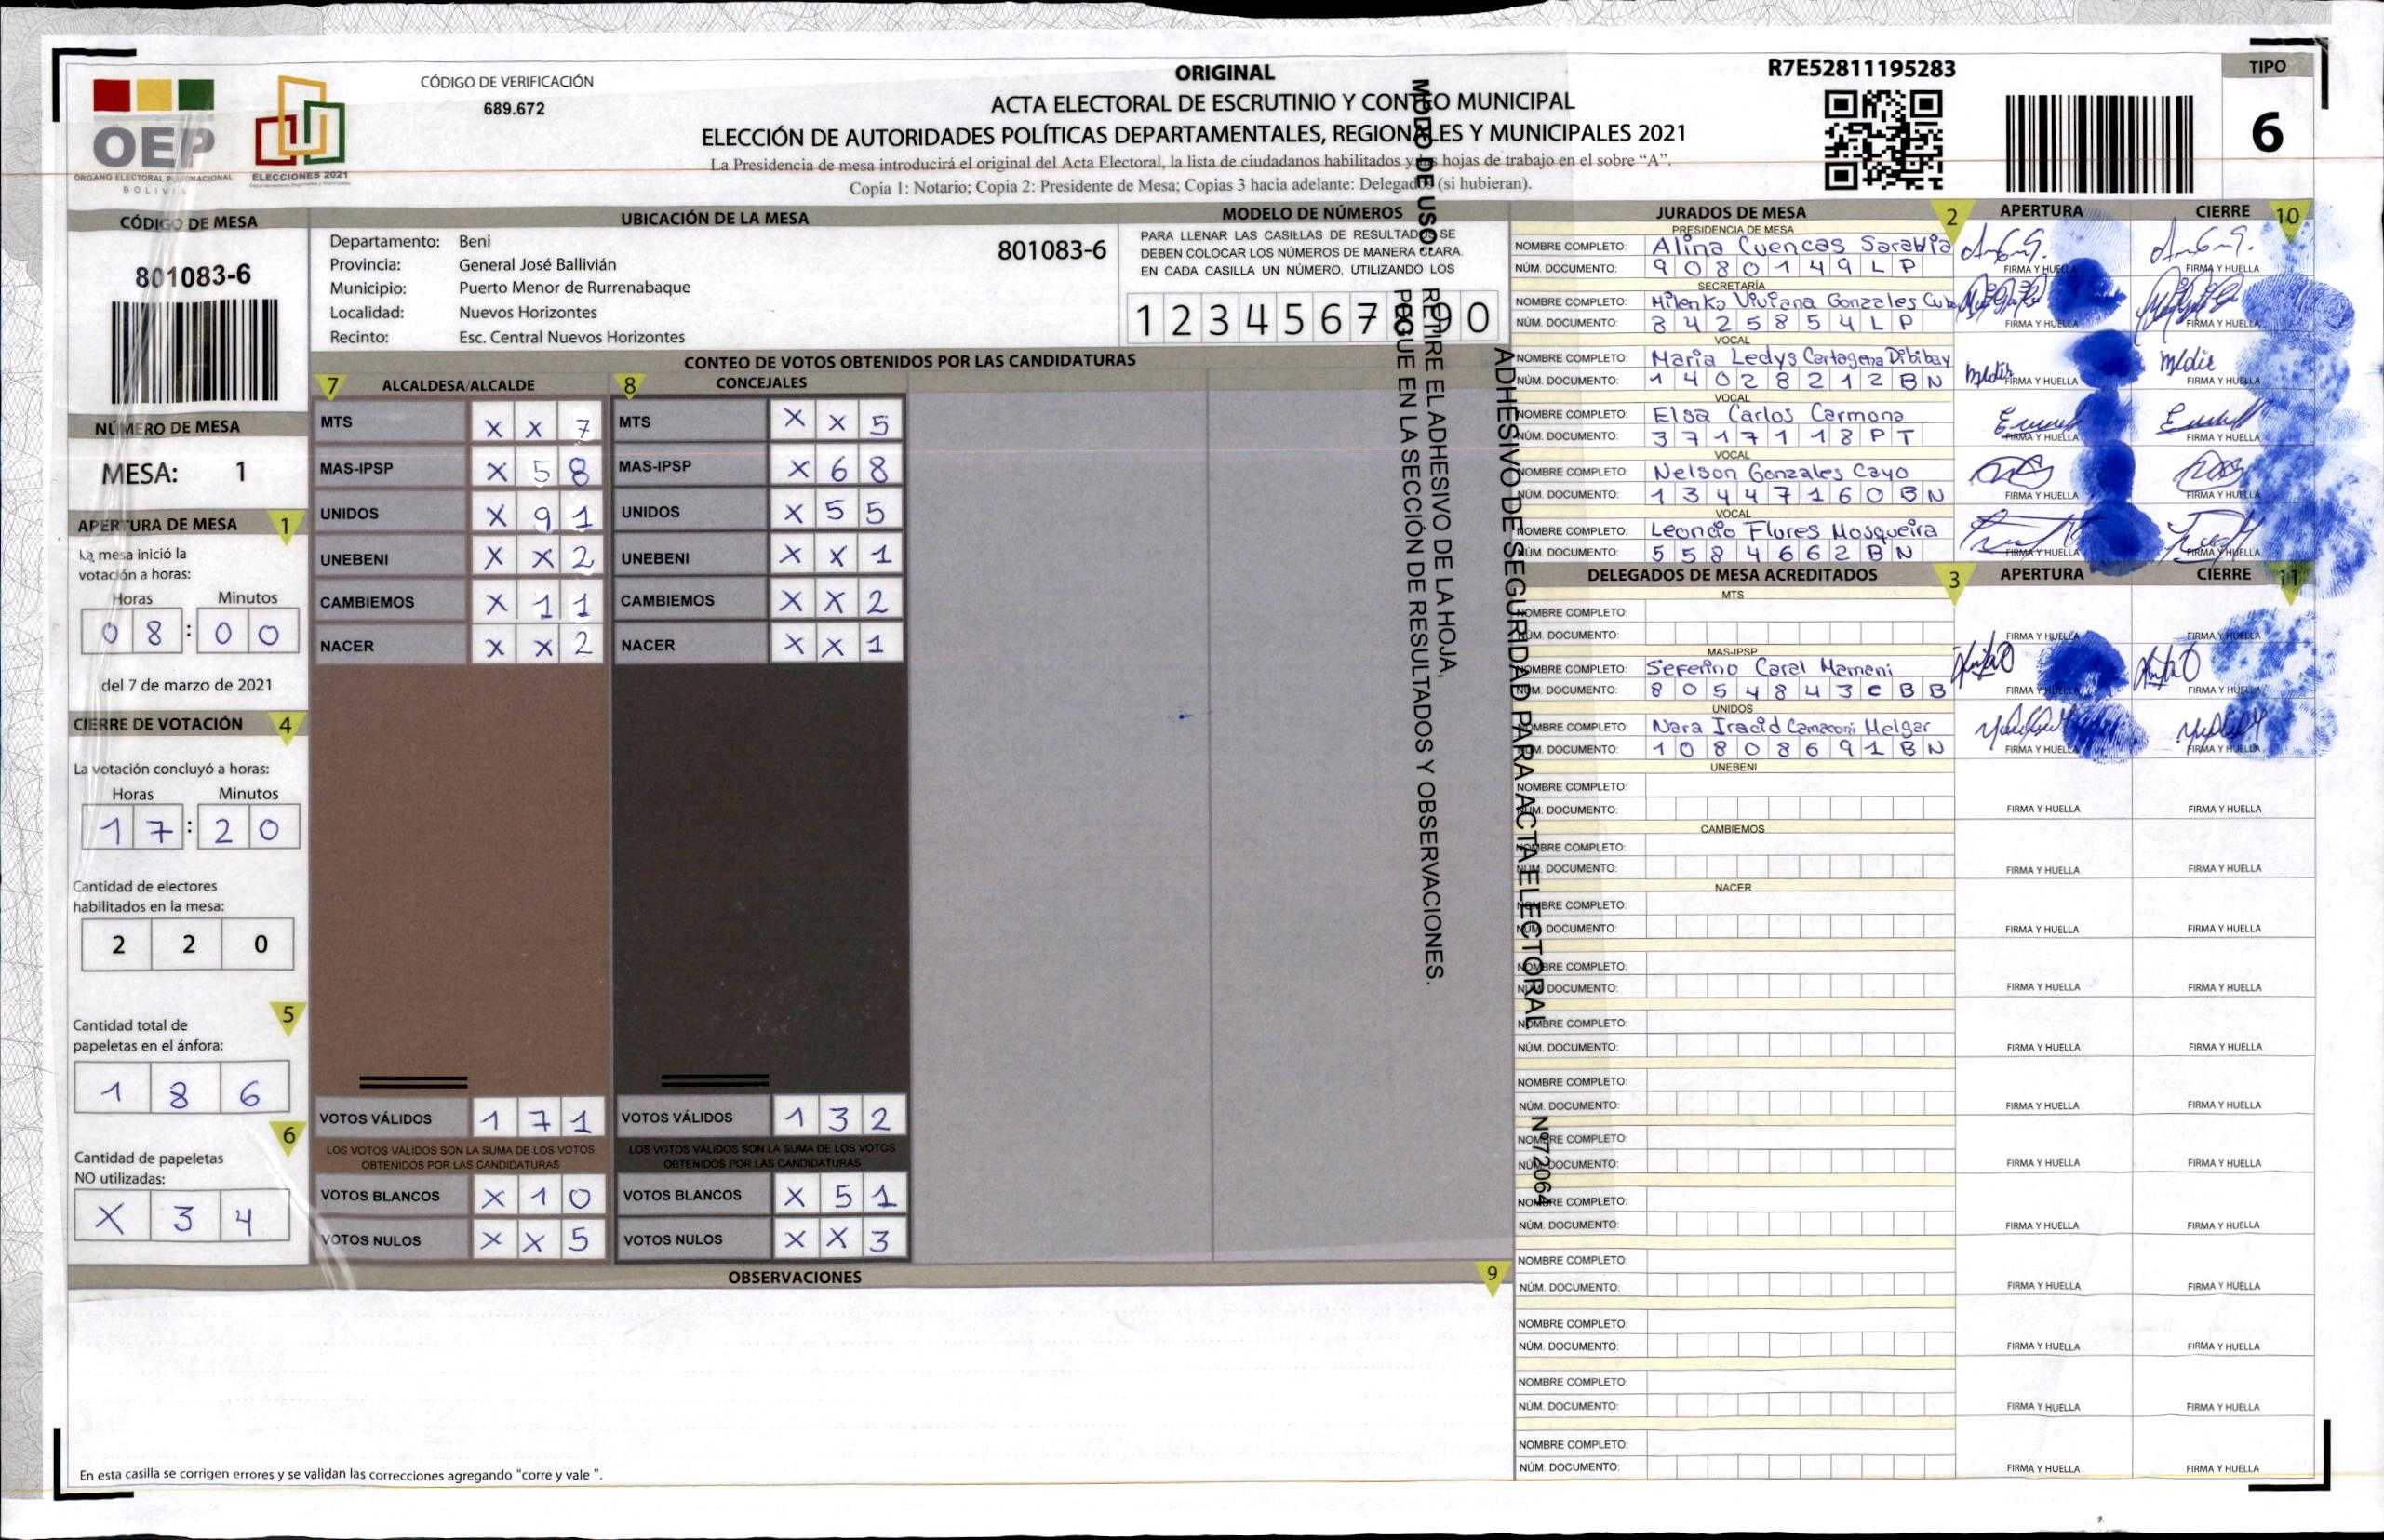 OEP
ÓRGANO ELECTORAL PLURINACIONAL
BOLIVIA
ELECCIONES 2021
CÓDIGO DE VERIFICACIÓN
689.672
ORIGINAL
ACTA ELECTORAL DE ESCRUTINIO Y CONTEO MUNICIPAL
ELECCIÓN DE AUTORIDADES POLÍTICAS DEPARTAMENTALES, REGIONALES Y MUNICIPALES 2021
La Presidencia de mesa introducirá el original del Acta Electoral, la lista de ciudadanos habilitados y las hojas de trabajo en el sobre “A”.
Copia 1: Notario; Copia 2: Presidente de Mesa; Copias 3 hacia adelante: Delegados (si hubieran).
R7E52811195283
TIPO
6
CÓDIGO DE MESA
801083-6
NÚMERO DE MESA
MESA: 1
APERTURA DE MESA 1
La mesa inició la
votación a horas:
Horas Minutos
0 8 : 0 0
del 7 de marzo de 2021
CIERRE DE VOTACIÓN 4
La votación concluyó a horas:
Horas Minutos
1 7 : 2 0
Cantidad de electores
habilitados en la mesa:
2 2 0
5
Cantidad total de
papeletas en el ánfora:
1 8 6
6
Cantidad de papeletas
NO utilizadas:
X 3 4
UBICACIÓN DE LA MESA
Departamento: Beni
801083-6
Provincia: General José Ballivián
Municipio: Puerto Menor de Rurrenabaque
Localidad: Nuevos Horizontes
Recinto: Esc. Central Nuevos Horizontes
MODELO DE NÚMEROS
PARA LLENAR LAS CASILLAS DE RESULTADOS SE
DEBEN COLOCAR LOS NÚMEROS DE MANERA CLARA.
EN CADA CASILLA UN NÚMERO, UTILIZANDO LOS
1 2 3 4 5 6 7 8 9 0
CONTEO DE VOTOS OBTENIDOS POR LAS CANDIDATURAS
7 ALCALDESA/ALCALDE
MTS X X 7
MAS-IPSP X 5 8
UNIDOS X 9 1
UNEBENI X X 2
CAMBIEMOS X 1 1
NACER X X 2
VOTOS VÁLIDOS 1 7 1
LOS VOTOS VÁLIDOS SON LA SUMA DE LOS VOTOS
OBTENIDOS POR LAS CANDIDATURAS
VOTOS BLANCOS X 1 0
VOTOS NULOS X X 5
8 CONCEJALES
MTS X X 5
MAS-IPSP X 6 8
UNIDOS X 5 5
UNEBENI X X 1
CAMBIEMOS X X 2
NACER X X 1
VOTOS VÁLIDOS 1 3 2
LOS VOTOS VÁLIDOS SON LA SUMA DE LOS VOTOS
OBTENIDOS POR LAS CANDIDATURAS
VOTOS BLANCOS X 5 1
VOTOS NULOS X X 3
OBSERVACIONES 9
En esta casilla se corrigen errores y se validan las correcciones agregando “corre y vale ”.
MODO DE USO: RETIRE EL ADHESIVO DE LA HOJA,
PEGUE EN LA SECCIÓN DE RESULTADOS Y OBSERVACIONES.
ADHESIVO DE SEGURIDAD PARA ACTA ELECTORAL Nº772064
JURADOS DE MESA 2 APERTURA CIERRE 10
PRESIDENCIA DE MESA
NOMBRE COMPLETO: Alina Cuencas Sarabia
NÚM. DOCUMENTO: 9 0 8 0 1 4 9 L P FIRMA Y HUELLA FIRMA Y HUELLA
SECRETARÍA
NOMBRE COMPLETO: Milenka Viviana Gonzales
NÚM. DOCUMENTO: 8 4 2 5 8 5 4 L P FIRMA Y HUELLA FIRMA Y HUELLA
VOCAL
NOMBRE COMPLETO: Maria Ledys Cartagena Dibibay
NÚM. DOCUMENTO: 1 4 0 2 8 2 1 2 B N FIRMA Y HUELLA FIRMA Y HUELLA
VOCAL
NOMBRE COMPLETO: Elsa Carlos Carmona
NÚM. DOCUMENTO: 3 7 1 7 1 1 8 P T FIRMA Y HUELLA FIRMA Y HUELLA
VOCAL
NOMBRE COMPLETO: Nelson Gonzales Cayo
NÚM. DOCUMENTO: 1 3 4 4 7 1 6 0 B N FIRMA Y HUELLA FIRMA Y HUELLA
VOCAL
NOMBRE COMPLETO: Leoncio Flores Mosqueira
NÚM. DOCUMENTO: 5 5 8 4 6 6 2 B N FIRMA Y HUELLA FIRMA Y HUELLA
DELEGADOS DE MESA ACREDITADOS 3 APERTURA CIERRE 11
MTS
NOMBRE COMPLETO:
NÚM. DOCUMENTO: FIRMA Y HUELLA FIRMA Y HUELLA
MAS-IPSP
NOMBRE COMPLETO: Seferino Caral Mamani
NÚM. DOCUMENTO: 8 0 5 4 8 4 3 C B B FIRMA Y HUELLA FIRMA Y HUELLA
UNIDOS
NOMBRE COMPLETO: Nara Iracid Camaconi Melgar
NÚM. DOCUMENTO: 1 0 8 0 8 6 9 1 B N FIRMA Y HUELLA FIRMA Y HUELLA
UNEBENI
NOMBRE COMPLETO:
NÚM. DOCUMENTO: FIRMA Y HUELLA FIRMA Y HUELLA
CAMBIEMOS
NOMBRE COMPLETO:
NÚM. DOCUMENTO: FIRMA Y HUELLA FIRMA Y HUELLA
NACER
NOMBRE COMPLETO:
NÚM. DOCUMENTO: FIRMA Y HUELLA FIRMA Y HUELLA
NOMBRE COMPLETO:
NÚM. DOCUMENTO: FIRMA Y HUELLA FIRMA Y HUELLA
NOMBRE COMPLETO:
NÚM. DOCUMENTO: FIRMA Y HUELLA FIRMA Y HUELLA
NOMBRE COMPLETO:
NÚM. DOCUMENTO: FIRMA Y HUELLA FIRMA Y HUELLA
NOMBRE COMPLETO:
NÚM. DOCUMENTO: FIRMA Y HUELLA FIRMA Y HUELLA
NOMBRE COMPLETO:
NÚM. DOCUMENTO: FIRMA Y HUELLA FIRMA Y HUELLA
NOMBRE COMPLETO:
NÚM. DOCUMENTO: FIRMA Y HUELLA FIRMA Y HUELLA
NOMBRE COMPLETO:
NÚM. DOCUMENTO: FIRMA Y HUELLA FIRMA Y HUELLA
NOMBRE COMPLETO:
NÚM. DOCUMENTO: FIRMA Y HUELLA FIRMA Y HUELLA
NOMBRE COMPLETO:
NÚM. DOCUMENTO: FIRMA Y HUELLA FIRMA Y HUELLA